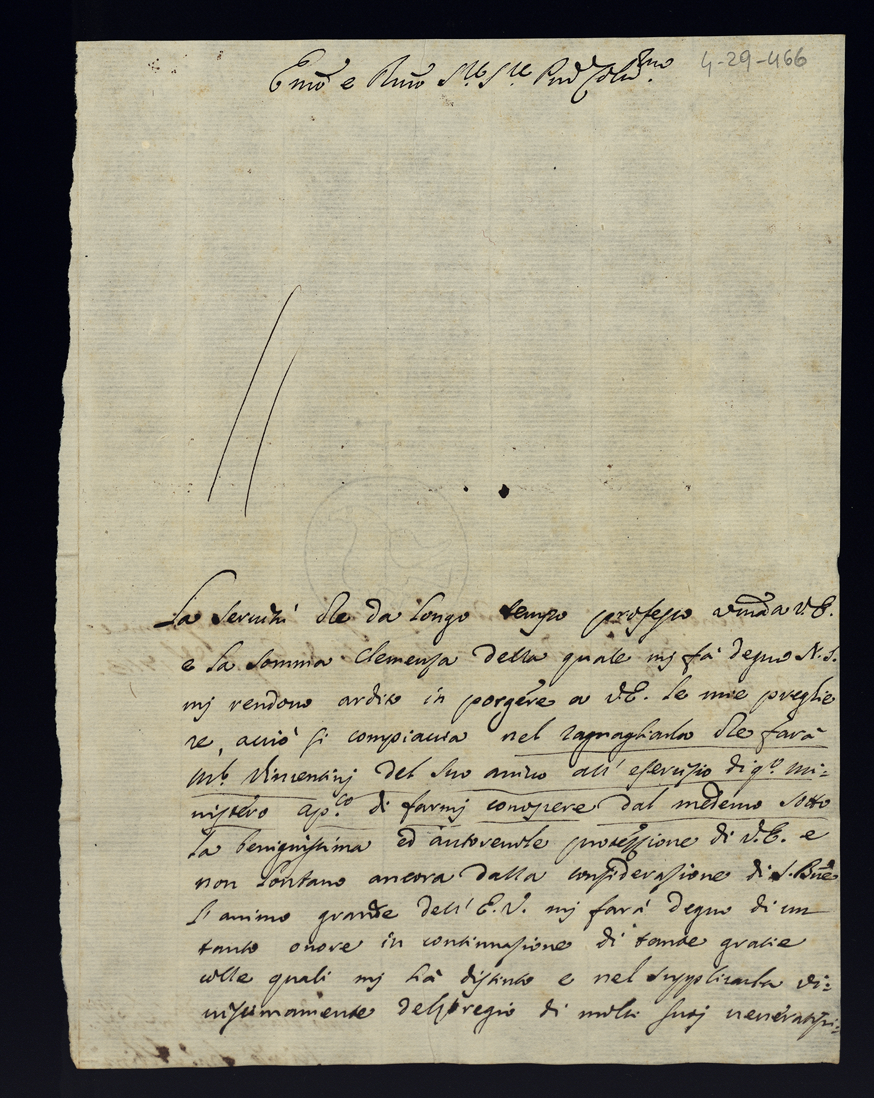 Emõ e Rmõ Sig.re Sig.re Prñe Colmõ
4-29-466
La servitù che da longo tempo professo verso da V.E.
e la somma Clemenza della quale mj fà degno N.S.
mj rendono ardito in porgere a V.E. le mie preghie
re, acciò si compiaccia nel ragnagliarlo che farà
Vincentinj del suo arrivo all' esercizio di q.o mi=
nistero ap.co di farmj conoscere dal medemo sotto
la benignissima ed autorevole protezzione di V.E. e
non lontano ancora dalla considerazione di S. Bñe
l'animo grande dell' E.V. mj farà degno di un
tanto onore in continuazione di tante gratie
colle quali mj hà distinto e nel supplicarla vi=
vissimamente del pregio di molti suoj veneratissi=